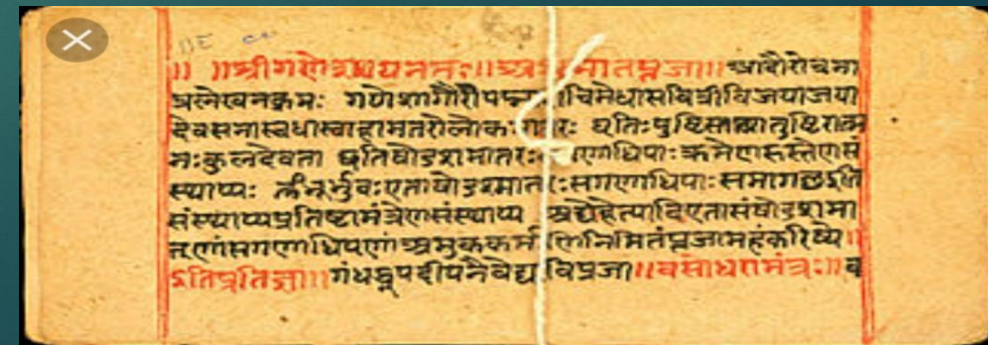 ।। ।।श्रीगणेशायनमः।।अथ मातृपूजा।।। आदौरोचना
प्रलेखनक्रमः गणेशगौरीपद्मा शचिमेधासवित्रीविजयाजया
देवसेनास्वधास्वाहामातरोलोक मातरः धृतिःपुष्टिस्तथातुष्टिरात्म
नःकुलदेवता इतिषोडशमातरः गणाधिपाः क्रमेणहस्तेण
स्थाप्यः ॐभूर्भुवःएताषोडशमातरःसगणाधिपाःसमागछ
संस्थाप्यप्रतिष्टामंत्रेणसंस्थाप्य अद्येहेत्यादिएतासंषोडशमा
तृणांसगणाधिपणां अमुककर्म निमितंपूजामहंकरिष्ये।।
इतिप्रतिज्ञा।।।गंधधूपदीपनैवेद्य विपूजा।।वसोधारामंत्रः।।व